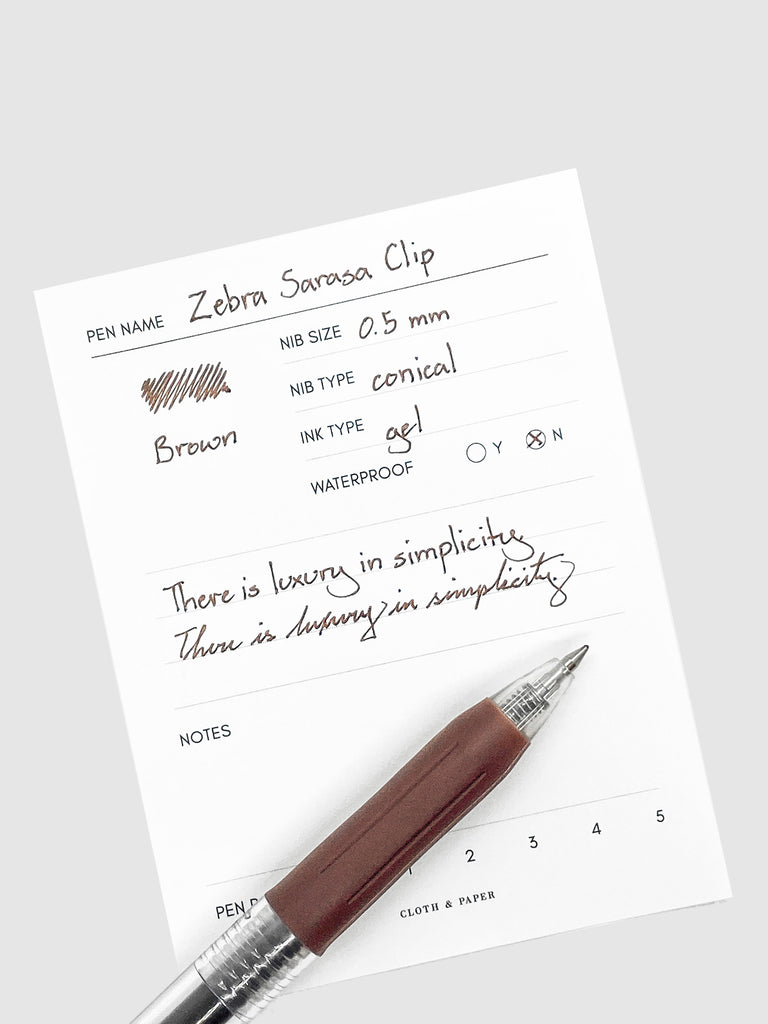 PEN NAME Zebra Sarasa Clip
NIB SIZE 0.5 mm
NIB TYPE conical
Brown
INK TYPE gel
WATERPROOF Y N
There is luxury in simplicity
There is luxury in simplicity.
NOTES
PEN 1 2 3 4 5
CLOTH & PAPER